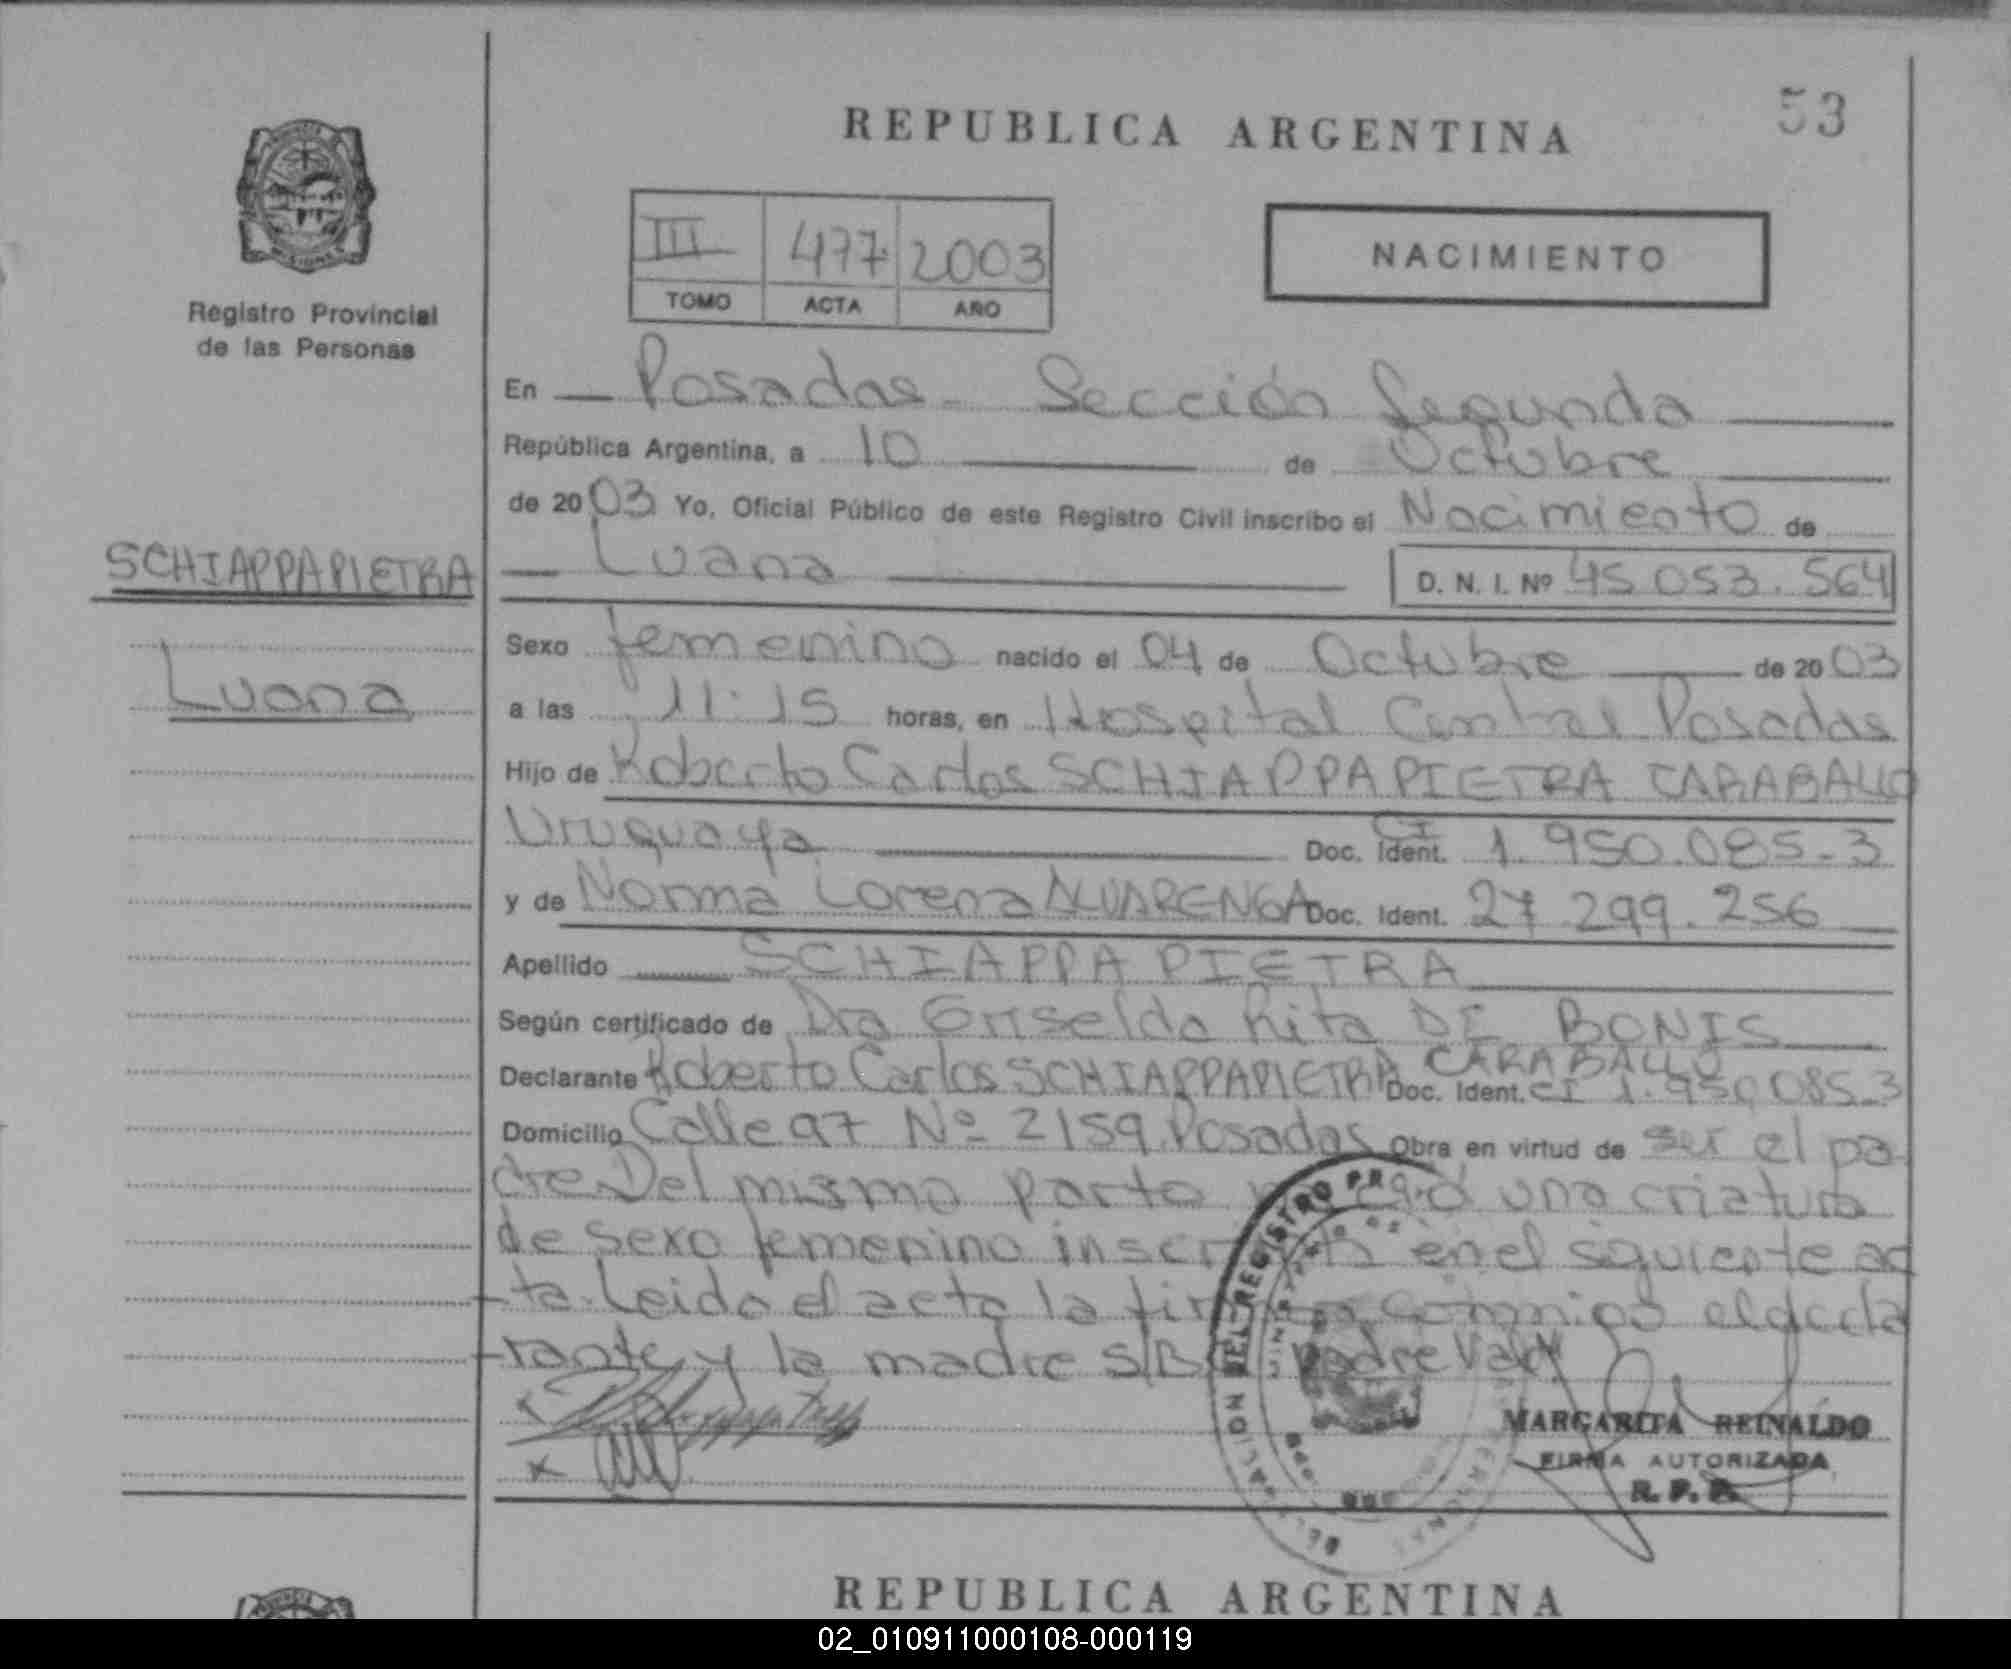 REPUBLICA ARGENTINA
53
MISIONES
Registro Provincial
de las Personas
III 477 2003
TOMO ACTA AÑO
NACIMIENTO
En Posadas - Sección Segunda
República Argentina, a 10 de Octubre
de 2003 Yo, Oficial Público de este Registro Civil inscribo el Nacimiento de
SCHIAPPAPIETRA
Luana
D. N. I. Nº 45.053.564
Sexo femenino nacido el 04 de Octubre de 2003
Luana
a las 11:15 horas, en Hospital Central Posadas
Hijo de Roberto Carlos SCHIAPPAPIETRA CARABALLO
Uruguaya Doc. Ident. CI 1.950.085-3
y de Norma Lorena ALVARENGA Doc. Ident. 27.299.256
Apellido SCHIAPPAPIETRA
Según certificado de Dra Griselda Rita DE BONIS
Declarante Roberto Carlos SCHIAPPAPIETRA CARABALLO Doc. Ident. CI 1.950.085-3
Domicilio Calle 97 Nº 2159 Posadas Obra en virtud de ser el pa-
dre Del mismo parto una criatura
de sexo femenino en el siguiente ac
-ta. Leido el acta la conmigo el decla
-rante y la madre S/B padre Vale
DEL REGISTRO PR
MARGARITA REINALDO
FIRMA AUTORIZADA
R. P. P.
REPUBLICA ARGENTINA
02_010911000108-000119